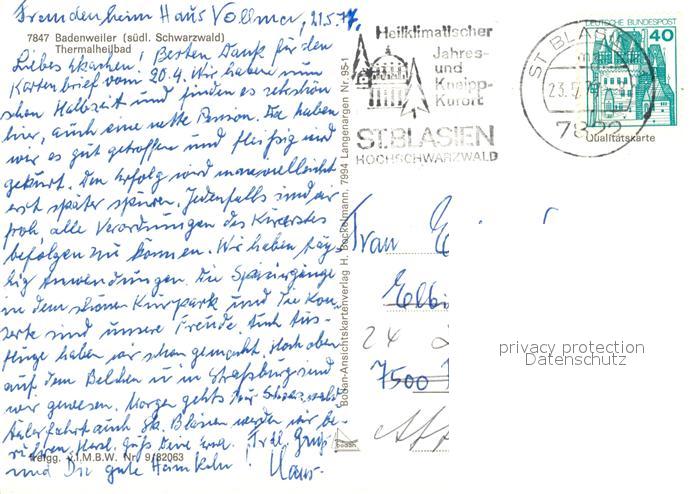 Fremdenheim Haus Vollmer, 21.5.77,
7847 Badenweiler (südl. Schwarzwald)
Thermalheilbad
Liebes ! Besten Dank für den
Kartenbrief vom 20.4. Wir haben nun
schon Halbzeit und finden es sehr schön
hier, auch eine nette Pension. Da haben
wir es gut getroffen und fleißig sind
gekurt. Den Erfolg wird man vielleicht
erst später spüren. Jedenfalls sind wir
froh alle Verordnungen des Kurarztes
befolgen zu können. Wir haben täg-
lich Anwendungen. Die Spaziergänge
in dem schönen Kurpark und die Kon-
zerte sind unsere Freude. Auch Aus-
flüge haben wir schon gemacht. Hoch oben
auf dem Belchen u in Straßburg sind
wir gewesen. Morgen gehts zur Schwarzwald
fahrt auch St. Blasien werden wir be-
rühren. Herzl. Grüße Deine Frdl. Grüße
und Die gute Heimkehr! Hans.
Freigg. v. I.M.B.W. Nr. 9/82063
Bodan-Ansichtskartenverlag H. Bockelmann, 7994 Langenargen Nr. 95-1
Bodan
Heilklimatischer
Jahres-
und
Kneipp-
Kurort
ST.BLASIEN
HOCHSCHWARZWALD
ST BLASI
23.5.77
7822
DEUTSCHE BUNDESPOST
40
Qualitätskarte
Frau E
Elbi
24
7500
privacy protection
Datenschutz